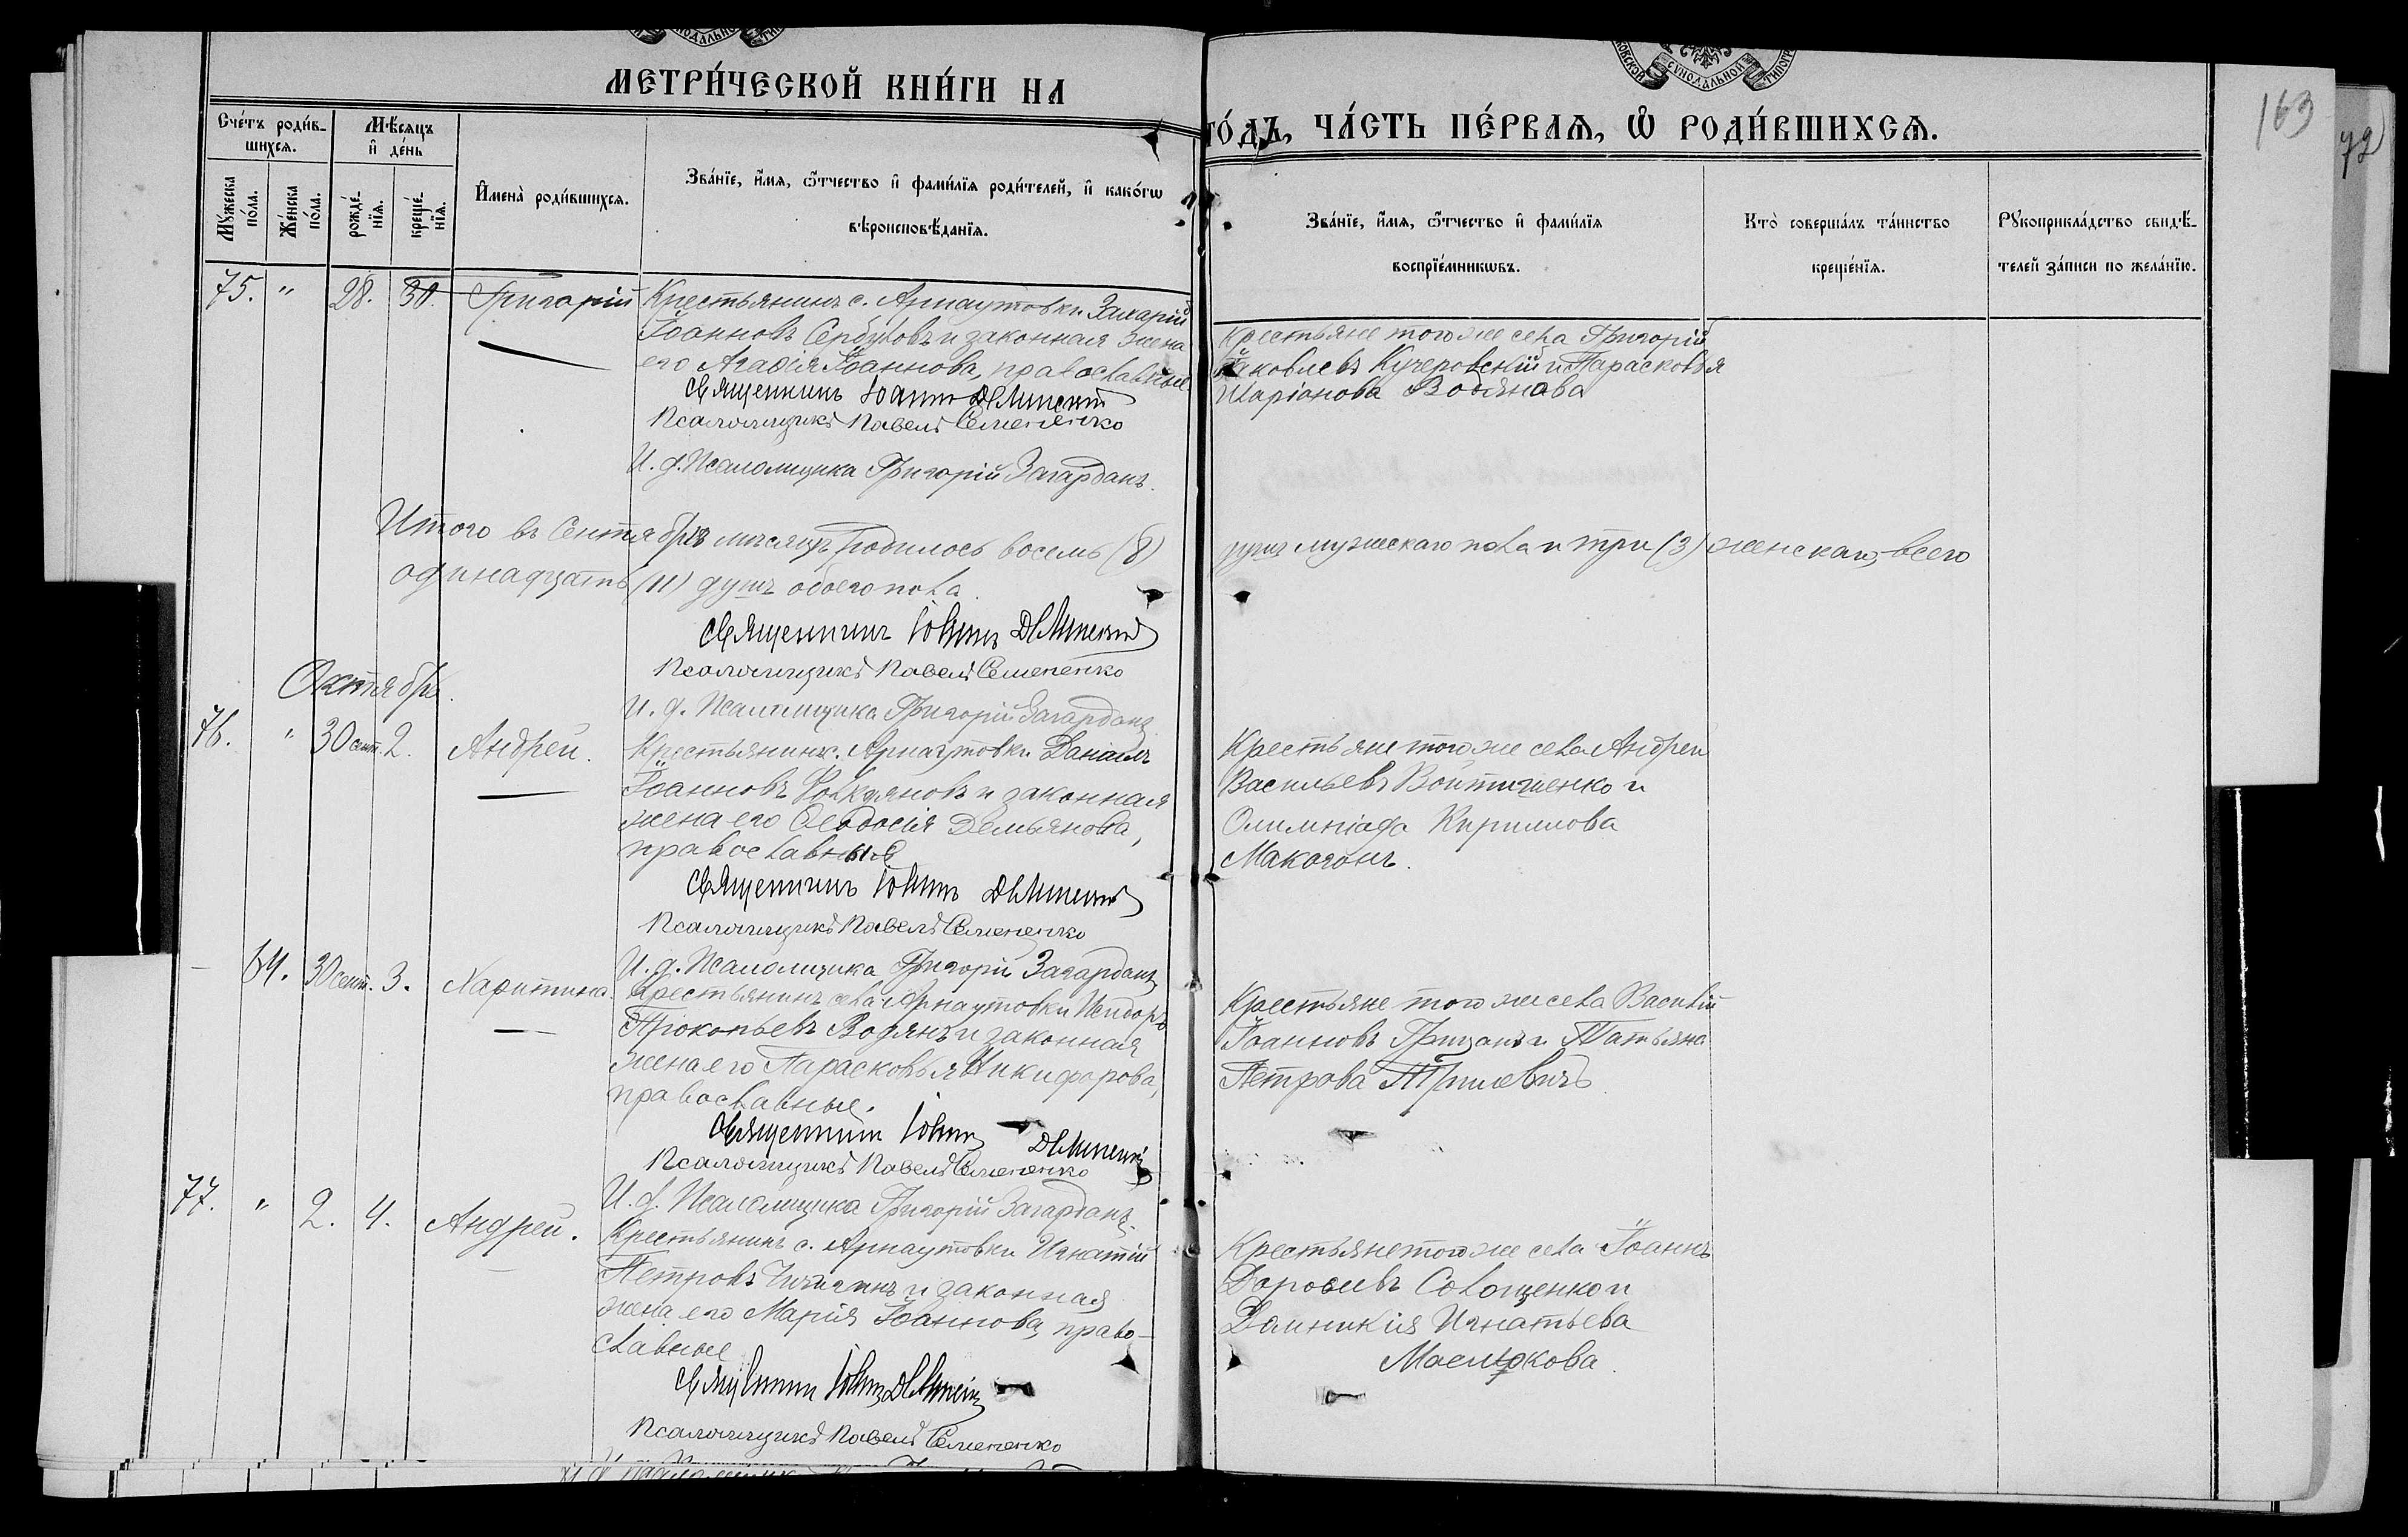 МЕТРИ́ЧЕСКОЙ КНИ́ГИ НА
ГО́ДЪ, ЧА́СТЬ ПЕ́РВАѦ, Ѿ РОДИ́ВШИХСѦ.
163
72
Сче́тъ роди́в-
шихсѧ.
Мѣ́сѧцъ
и҆ де́нь
Мꙋ́жеска
по́ла.
Же́нска
по́ла.
рожде́-
нїѧ.
креще́-
нїѧ.
И҆мена̀ роди́вшихсѧ.
Зва́нїе, и҆́мѧ, ѻ҆́тчество и҆ фами́лїѧ роди́телей, и҆ како́гѡ
вѣроисповѣ́данїѧ.
Зва́нїе, и҆́мѧ, ѻ҆́тчество и҆ фами́лїѧ
воспрїе́мникѡвъ.
Кто̀ соверша́лъ та́инство
креще́нїѧ.
Рꙋкоприкла́дство свидѣ́-
телей за́писи по жела́нїю.
75. " 28. 30. Григорій
Крестьянинъ с. Арнаутовки Захарій
Іоанновъ Сербуловъ и законная жена
его Агафія Іоаннова, православные
Священникъ Іоаннъ
Псаломщикъ Павелъ Семененко
И. д. Псаломщика Григорій Загарданъ.
Крестьяне того же села Григорій
Яковлевъ Кучеровскій и Парасковья
Маріанова Водянова
Итого въ Сентябрѣ мѣсяцѣ родилось восемь (8) душъ мужескаго пола и три (3) женскаго, всего
одинадцать (11) душъ обоего пола.
Священникъ Іоаннъ
Псаломщикъ Павелъ Семененко
И. д. Псаломщика Григорій Загарданъ
Октябрь.
76. " 30 сент. 2. Андрей.
Крестьянинъ с. Арнаутовки Даніилъ
Іоанновъ и законная
жена его Ѳеодосія Демьянова,
православныя
Священникъ Іоаннъ
Псаломщикъ Павелъ Семененко
И. д. Псаломщика Григорій Загарданъ
Крестьяне того же села Андрей
Васильевъ Войтишенко и
Олимпіада Кириллова
Макогонъ.
- 64. 30 сент. 3. Харитина.
Крестьянинъ села Арнаутовки Исидоръ
Прокопьевъ Водянъ и законная
жена его Парасковья Никифорова,
православные.
Священникъ Іоаннъ
Псаломщикъ Павелъ Семененко
И. д. Псаломщика Григорій Загарданъ.
Крестьяне того же села Василій
Іоанновъ Грицанъ и Татьяна
Петрова
77. " 2. 4. Андрей.
Крестьянинъ с. Арнаутовки Игнатій
Петровъ и законная
жена его Марія Іоаннова, право-
славные
Священникъ Іоаннъ
Псаломщикъ Павелъ Семененко
Крестьяне того же села Іоаннъ
Дороѳеевъ Солощенко и
Домникія Игнатьева